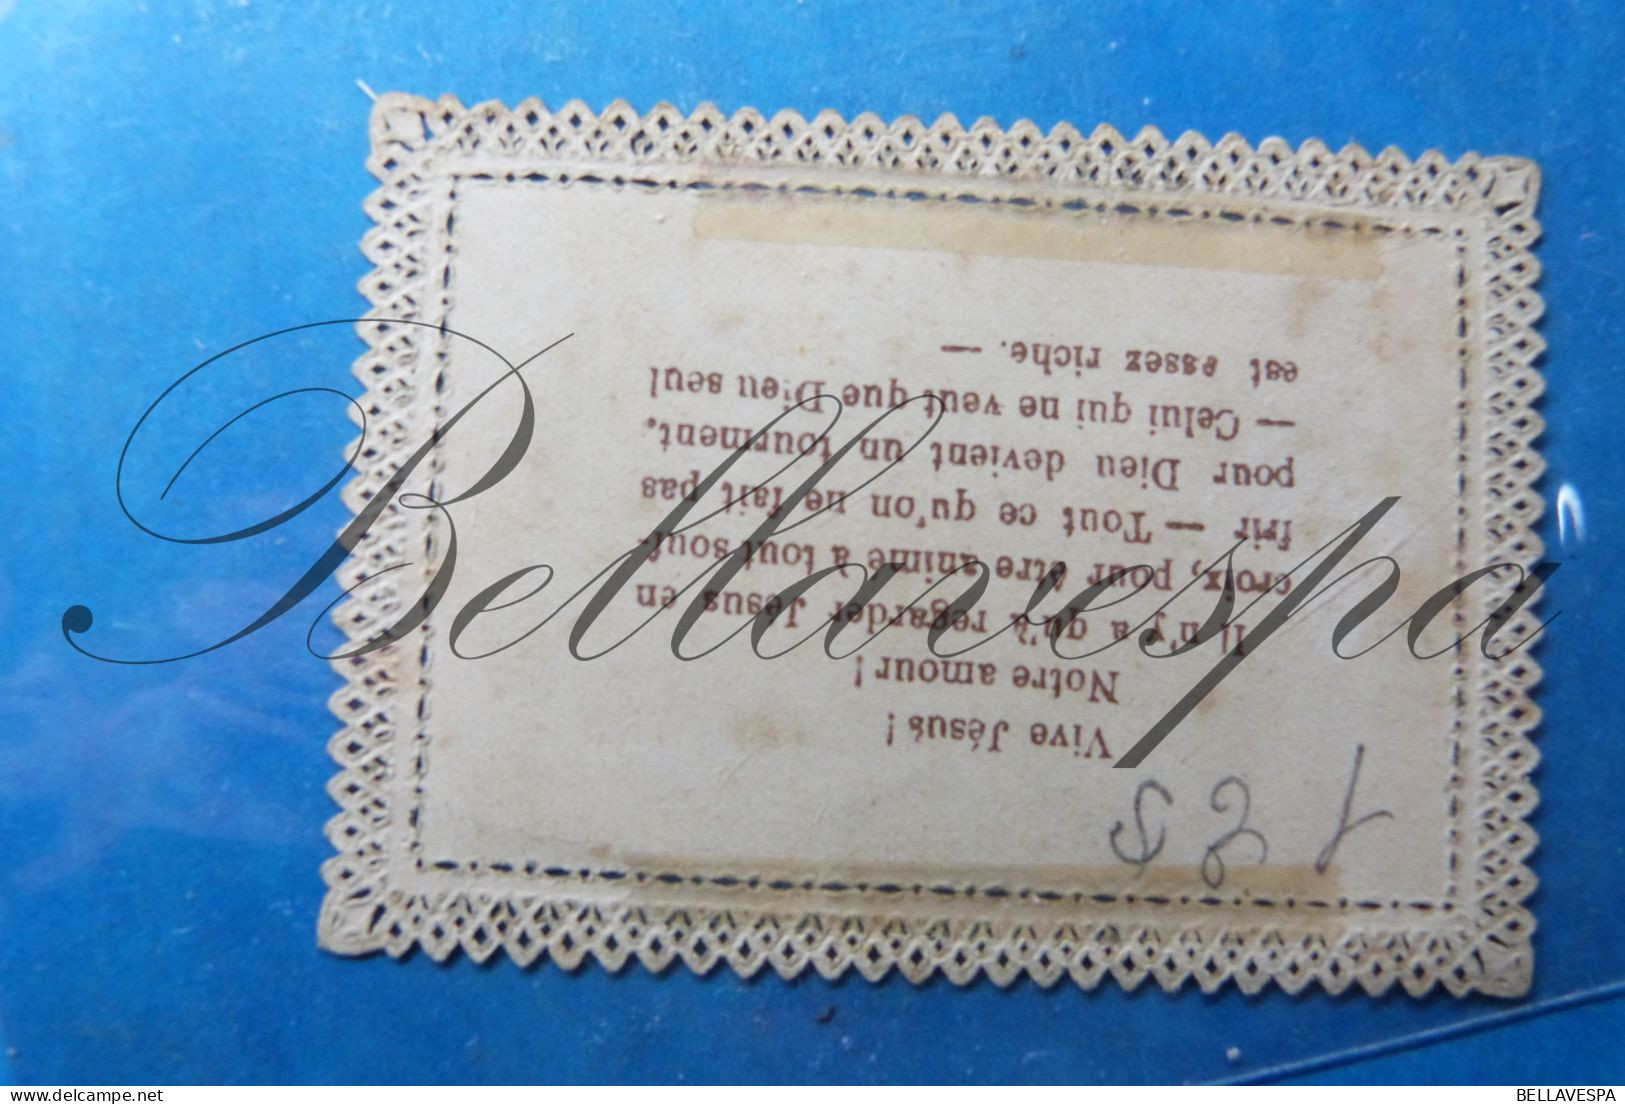 Vive Jésus !
Notre amour !
Il n'y a qu'à regarder Jésus en
croix, pour être animé à tout souf-
frir — Tout ce qu'on ne fait pas
pour Dieu devient un tourment.
— Celui qui ne veut que Dieu seul
est assez riche. —
Bellavespa
BELLAVESPA